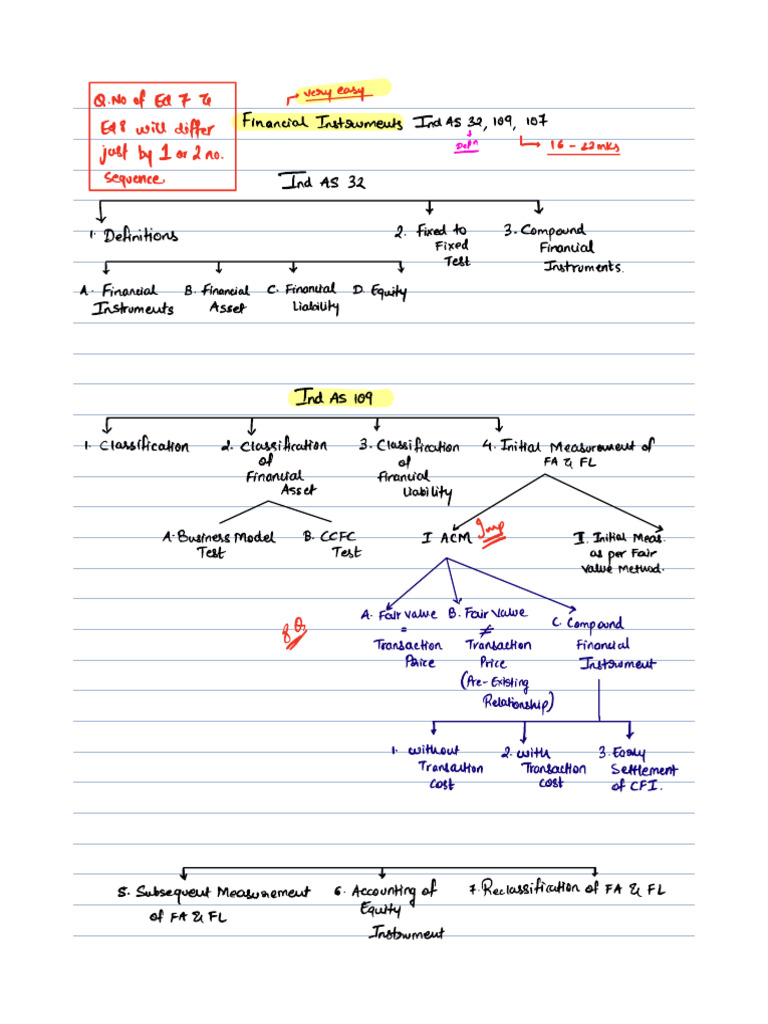 very easy
Q.No of Ed 7 &
Ed 8 will differ
just by 1 or 2 no.
sequence
Financial Instruments Ind AS 32, 109, 107
Defn
16 - 22 mks
Ind AS 32
1. Definitions
2. Fixed to
Fixed
Test
3. Compound
Financial
Instruments.
A. Financial
Instruments
B. Financial
Asset
C. Financial
Liability
D. Equity
Ind AS 109
1. Classification
2. Classification
of
Financial
Asset
3. Classification
of
Financial
Liability
4. Initial Measurement of
FA & FL
A. Business Model
Test
B. CCFC
Test
I ACM
Imp
II. Initial Meas.
as per Fair
Value Method.
8 Qs
A. Fair value
=
Transaction
Price
B. Fair Value
≠
Transaction
Price
(Pre-Existing
Relationship)
C. Compound
Financial
Instrument
1. without
Transaction
Cost
2. with
Transaction
cost
3. Early
Settlement
of CFI.
5. Subsequent Measurement
of FA & FL
6. Accounting of
Equity
Instrument
7. Reclassification of FA & FL